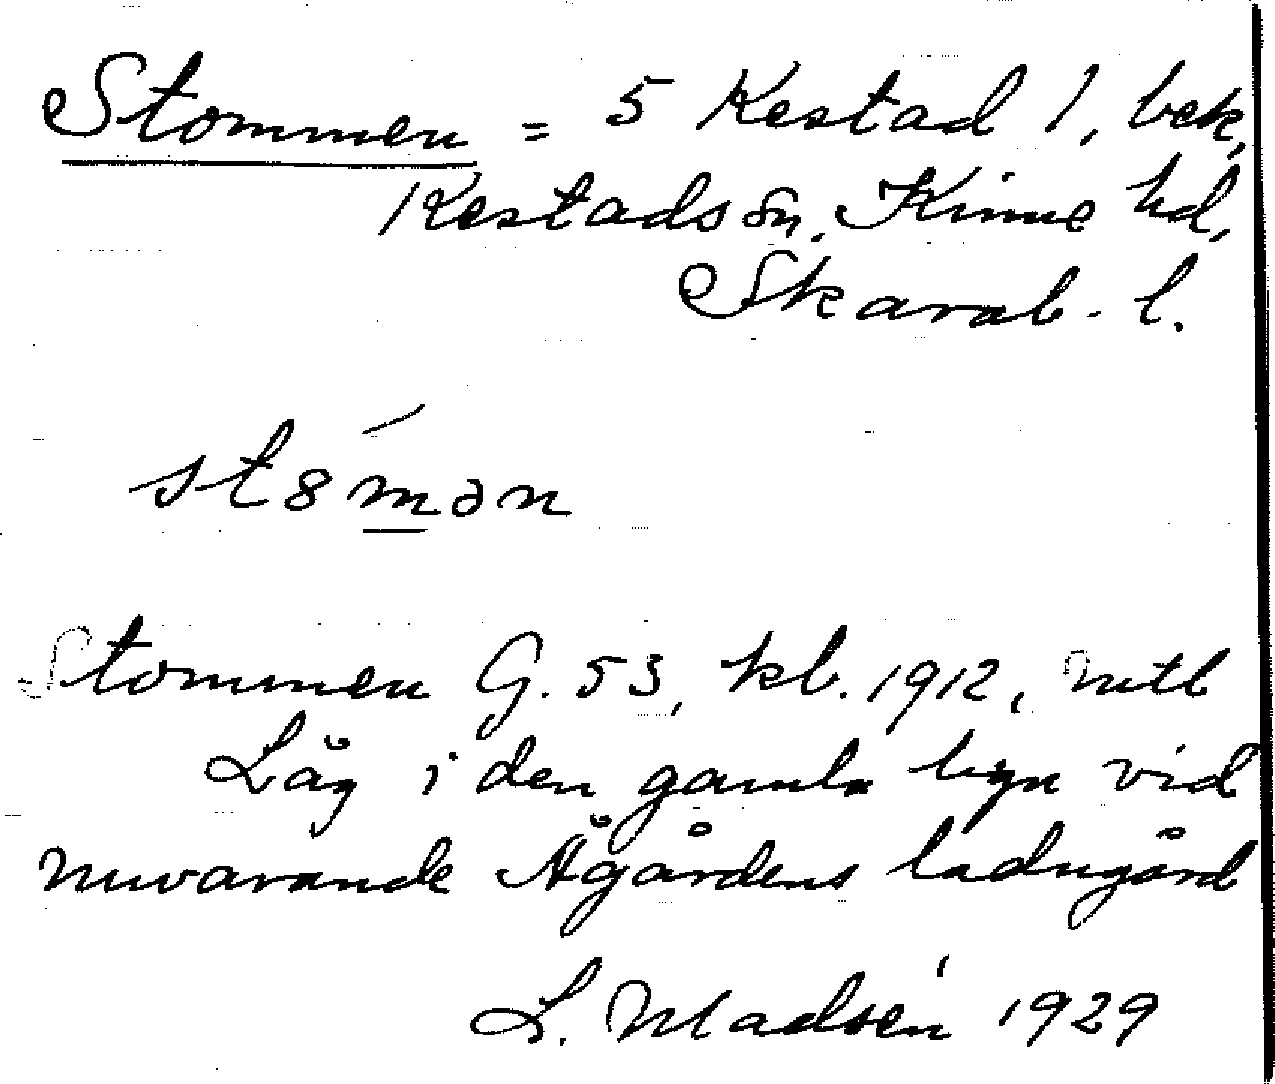 Stommen = 5 Kestad 1, bek,
Kestads sn, Kinne hd,
Skarab. l.
st8́mən
Stommen G. 53, kl. 1912, mtl
Låg i den gamla byn vid
nuvarande Ågårdens ladugård
L. Madsén 1929